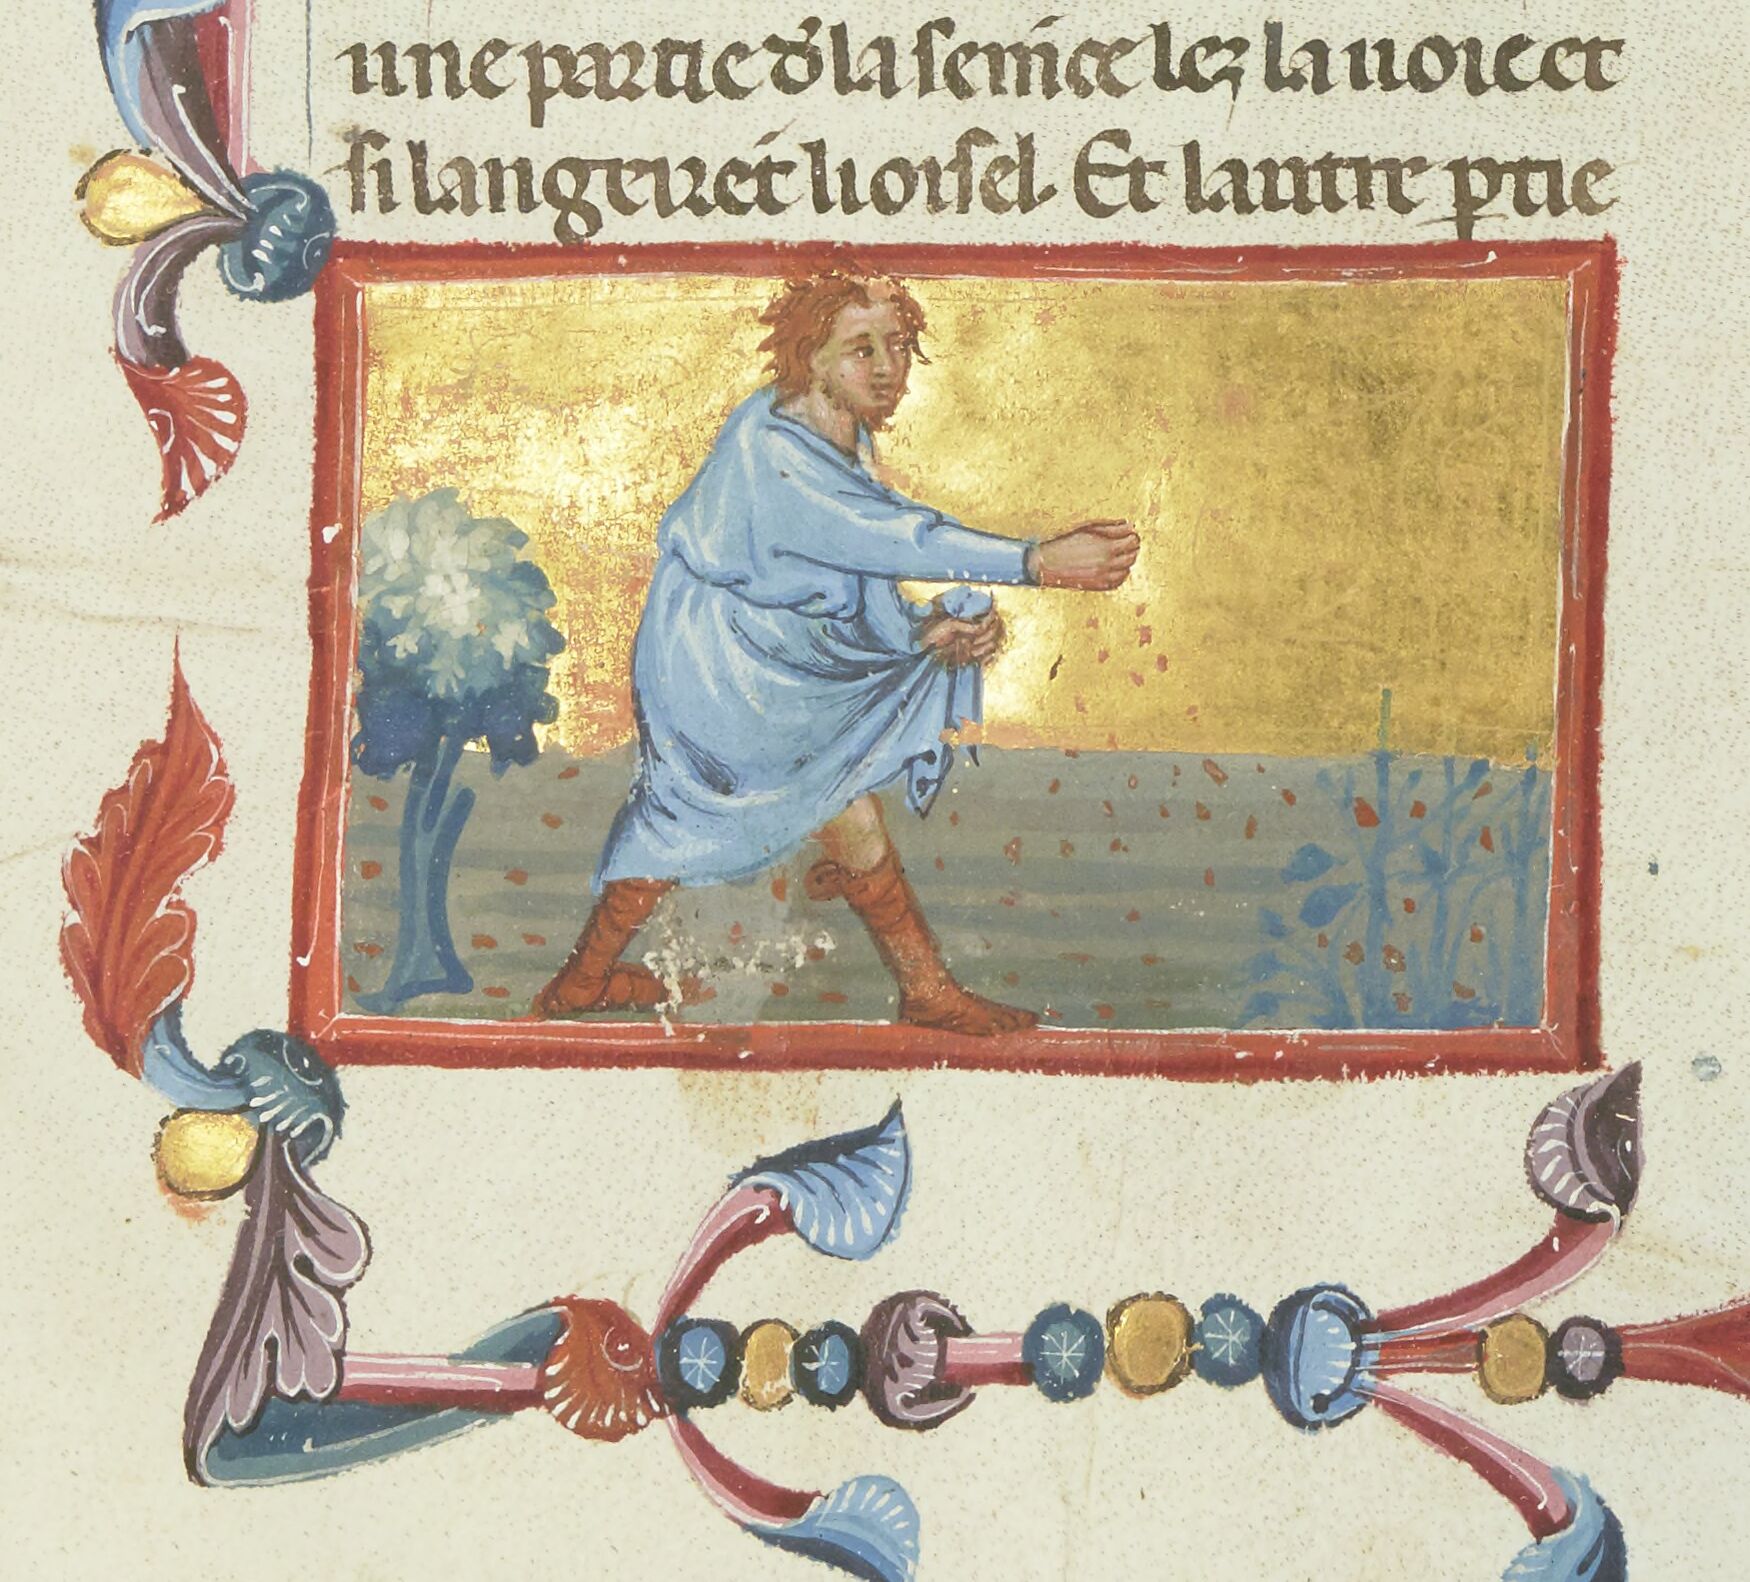 une partie d̾ la semce lez la uoie et
si langerẽt li oisel. Et lautre ꝑtie